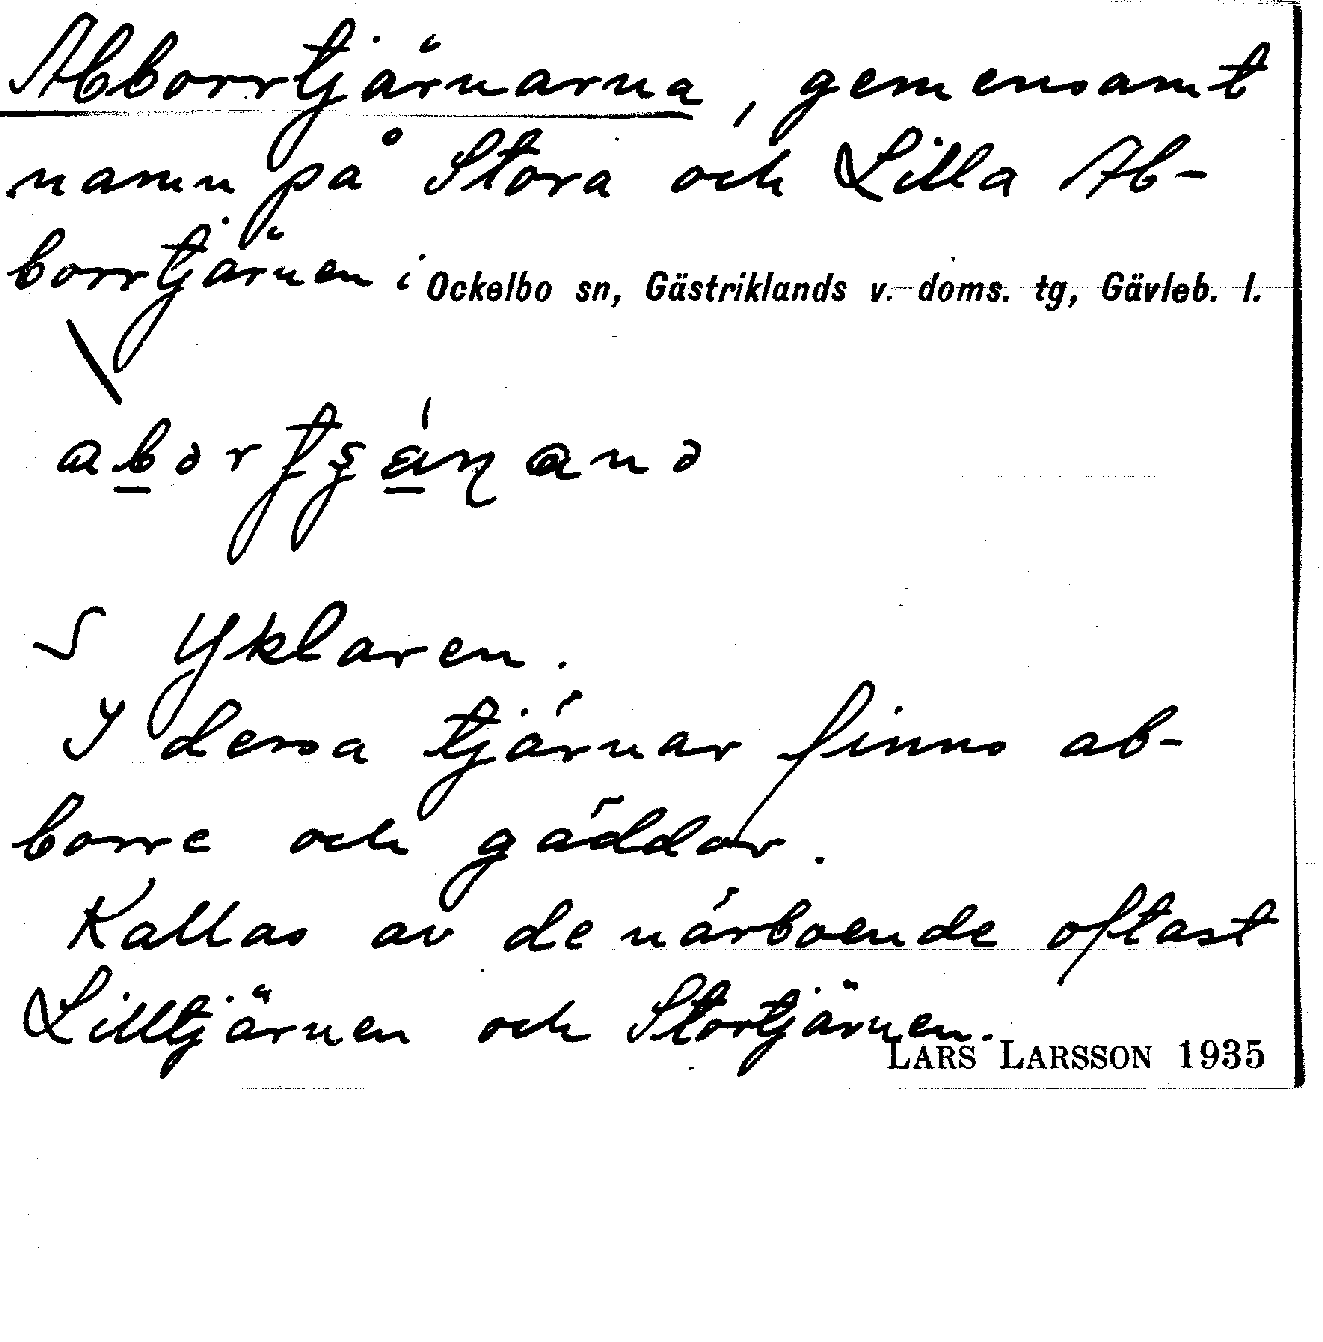 Abborrtjärnarna, gemensamt
namn på Stora och Lilla Ab-
borrtjärnen i Ockelbo sn, Gästriklands v. doms. tg, Gävleb. l.
S Yklaren.
I dessa tjärnar finns ab-
borre och gäddor.
Kallas av de närboende oftast
Lilltjärnen och Stortjärnen.
LARS LARSSON 1935